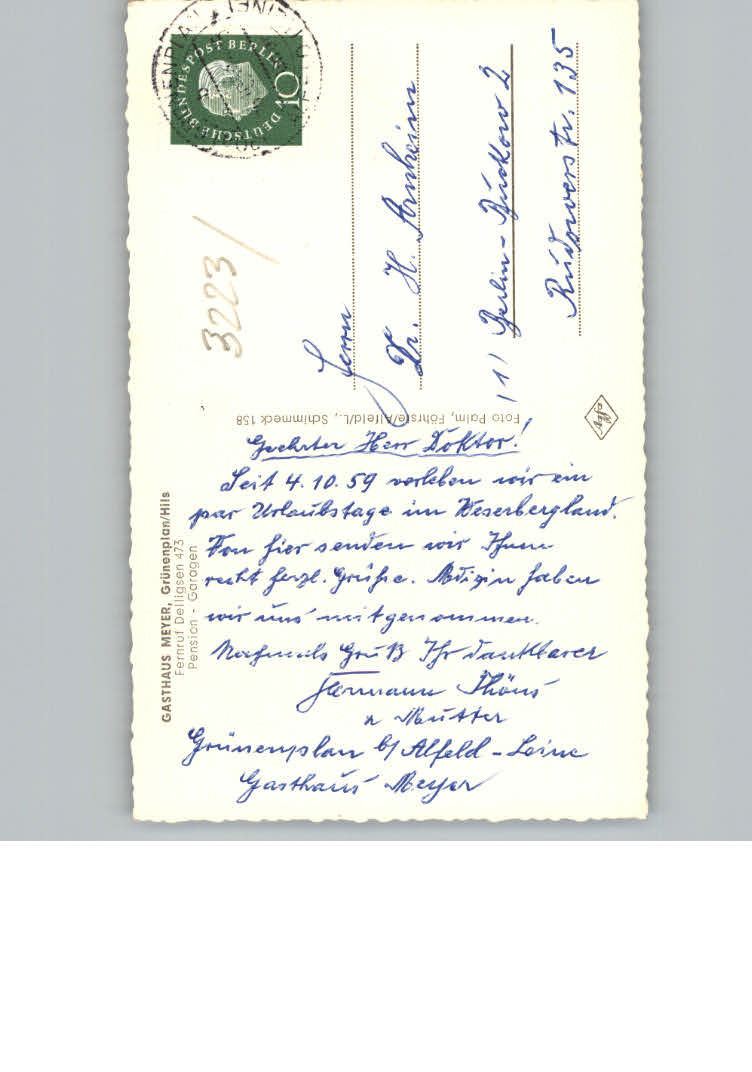 GASTHAUS MEYER, Grünenplan/Hils
Fernruf Delligsen 473
Pension - Garagen
Geehrter Herr Doktor!
Seit 4.10.59 verleben wir ein
par Urlaubstage im Weserbergland.
Von hier senden wir Ihnen
recht herzl. Grüße. Medizin haben
wir uns mitgenommen.
Nochmals Gruß Ihr dankbarer
Hermann
u Mutter
Grünenplan b/ Alfeld - Leine
Gasthaus Meyer
Foto Palm, Föhrste/Alfeld/L., Schimmeck 158
Agfa
DEUTSCHE BUNDESPOST BERLIN
10
3223/
Herrn
Dr. H. Arnheim
11) Berlin - Buckow 2
Rudowerstr. 135